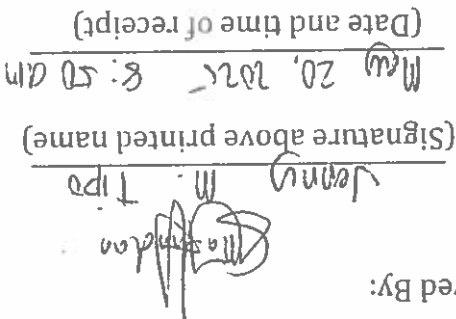 ved By:
Jenny M. Tipo
(Signature above printed name)
May 20, 2025 8:50 am
(Date and time of receipt)